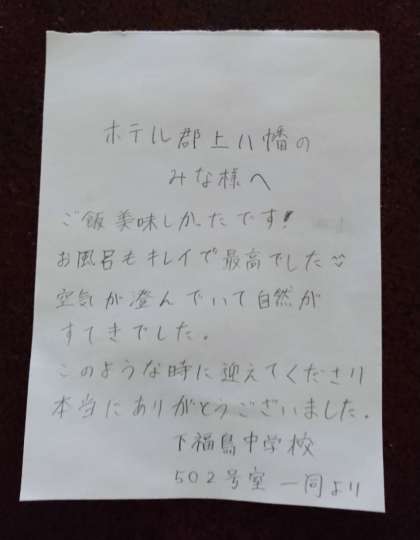 ホテル郡上八幡の
みな様へ
ご飯美味しかったです!
お風呂もキレイで最高でした
空気が澄んでいて自然が
すてきでした。
このような時に迎えてくださり
本当にありがとうございました。
下福島中学校
502号室 一同より